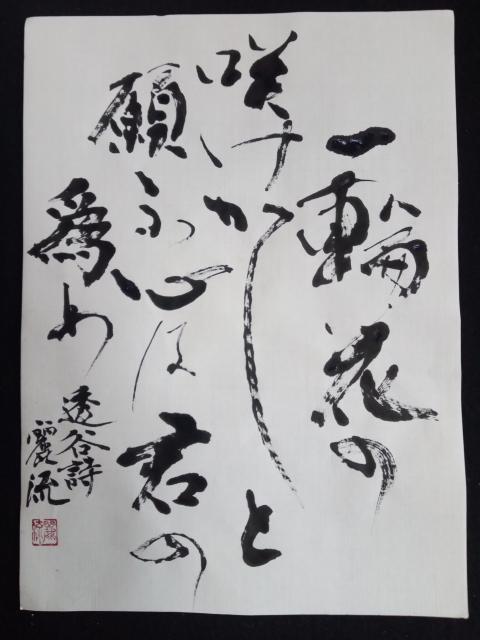 一輪花の
咲けかしと
願ふ心は君の
為め
透谷詩
麗流